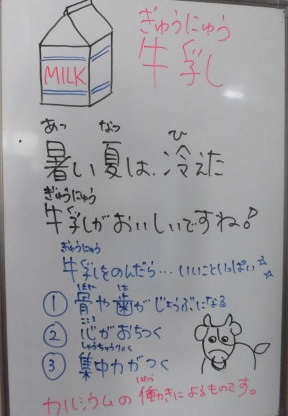 ぎゅうにゅう
MILK
牛乳
あつ なつ ひ
暑い夏は、冷えた
ぎゅうにゅう
牛乳がおいしいですね♪
ぎゅうにゅう
牛乳をのんだら…いいこといっぱい☆☆
ほね は
① 骨や歯がじょうぶになる
こころ
② 心がおちつく
しゅうちゅうりょく
③ 集中力がつく
はたら
カルシウムの働きによるものです。